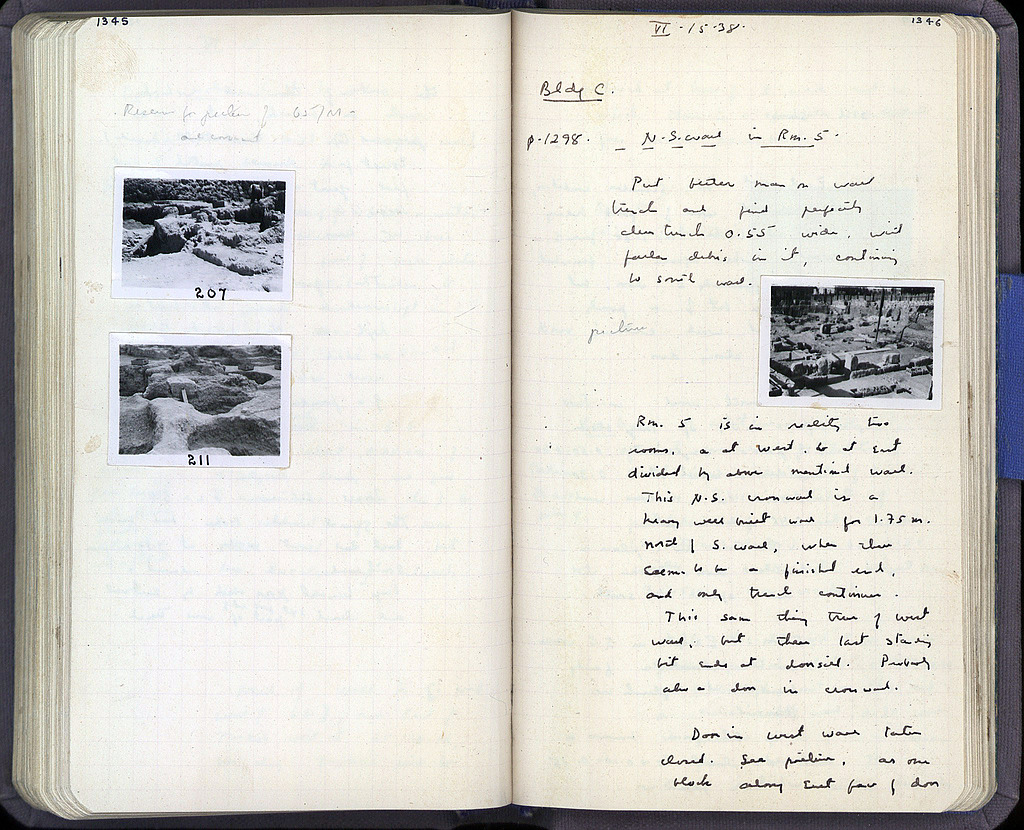 1345
for picture of 65/ΜΑ
and
207
211
1346
VI-15-38.
Bldg C.
p.1298. - N-S. wall in Rm. 5.
Put better man on wall
trench and find perfectly
clear trench 0.55 wide, with
fallen debris in it, continuing
to south wall.
picture
Rm. 5 is in reality two
rooms, a at West, b at East
divided by above mentioned wall.
This N.S. crosswall is a
heavy well built wall for 1.75 m.
north of S. wall, where there
seems to be a finished end,
and only trench continues.
This same thing true of west
wall, but there last standing
bit ends at doorsill. Probably
also a door in crosswall.
Door in west wall later
closed. See picture, as one
block along East face of door